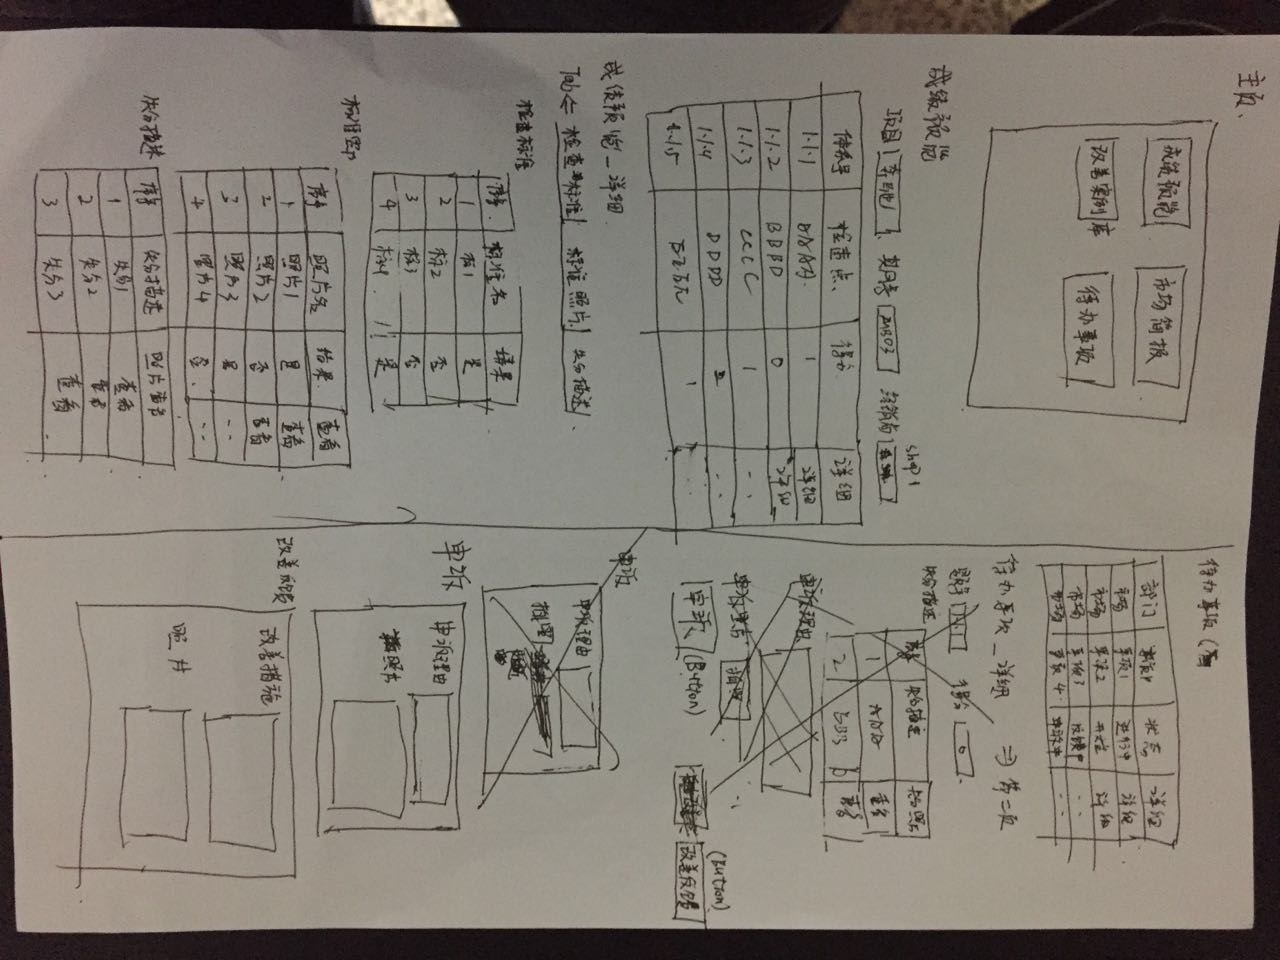 主页.
成绩预览 市场简报
改善案例库 待办事项
成绩预览
shop 1
项目 奔驰1 期号 经销商
体系号 检查点 得分 详细
1.1.1 AAAA. 1 详细
1.1.2 BBBD 0 详细
1.1.3 CCCC 1 --
1.1.4 DDDD --
1.1.5 1
成绩预览_详细
Tab ⇐ 检查标准 标准照片 失分描述
检查标准
序号 标准名 结果
1 标1 是
2 标2 否
3 标3 否
4 标4 是
标准
序号 照片名 结果 查看
1 照片1 是 查看
2 照片2 否 查看
3 照片3 是 --
4 照片4 否 --
失分描述
序号 失分描述 照片查看
1 失分1 查看
2 失分2 查看
3 失分3 查看
待办事项 (
部门 事项 状态 详细
市场 事项1 进行中 详细
市场 事项2 详细
市场 事项3 反馈中 --
市场 事项4 申诉中 --
待办事项_详细 ⇒ 第二页
题号 1.1.1 得分 0
失分描述
序号 失分描述 失分照片
1 AAA 查看
2 BBB 查看
申诉理由
申诉照片 拍照
(Button)
申诉 (Button) 改善反馈
申诉
申诉理由
拍照
申诉
申诉理由
照片
改善反馈
改善措施
照片